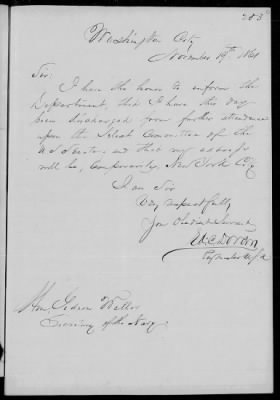 283
Washington City
November 19th 1861
Sir:
I have the honor to inform the
Department, that I have this day
been discharged from further attendance
upon the Select Committee of the
U.S. Senate, and that my address
will be, temporarily, New York City
I am Sir
Very respectfully
Your Obedient Servant
Hon. Gideon Welles
Secretary of the Navy